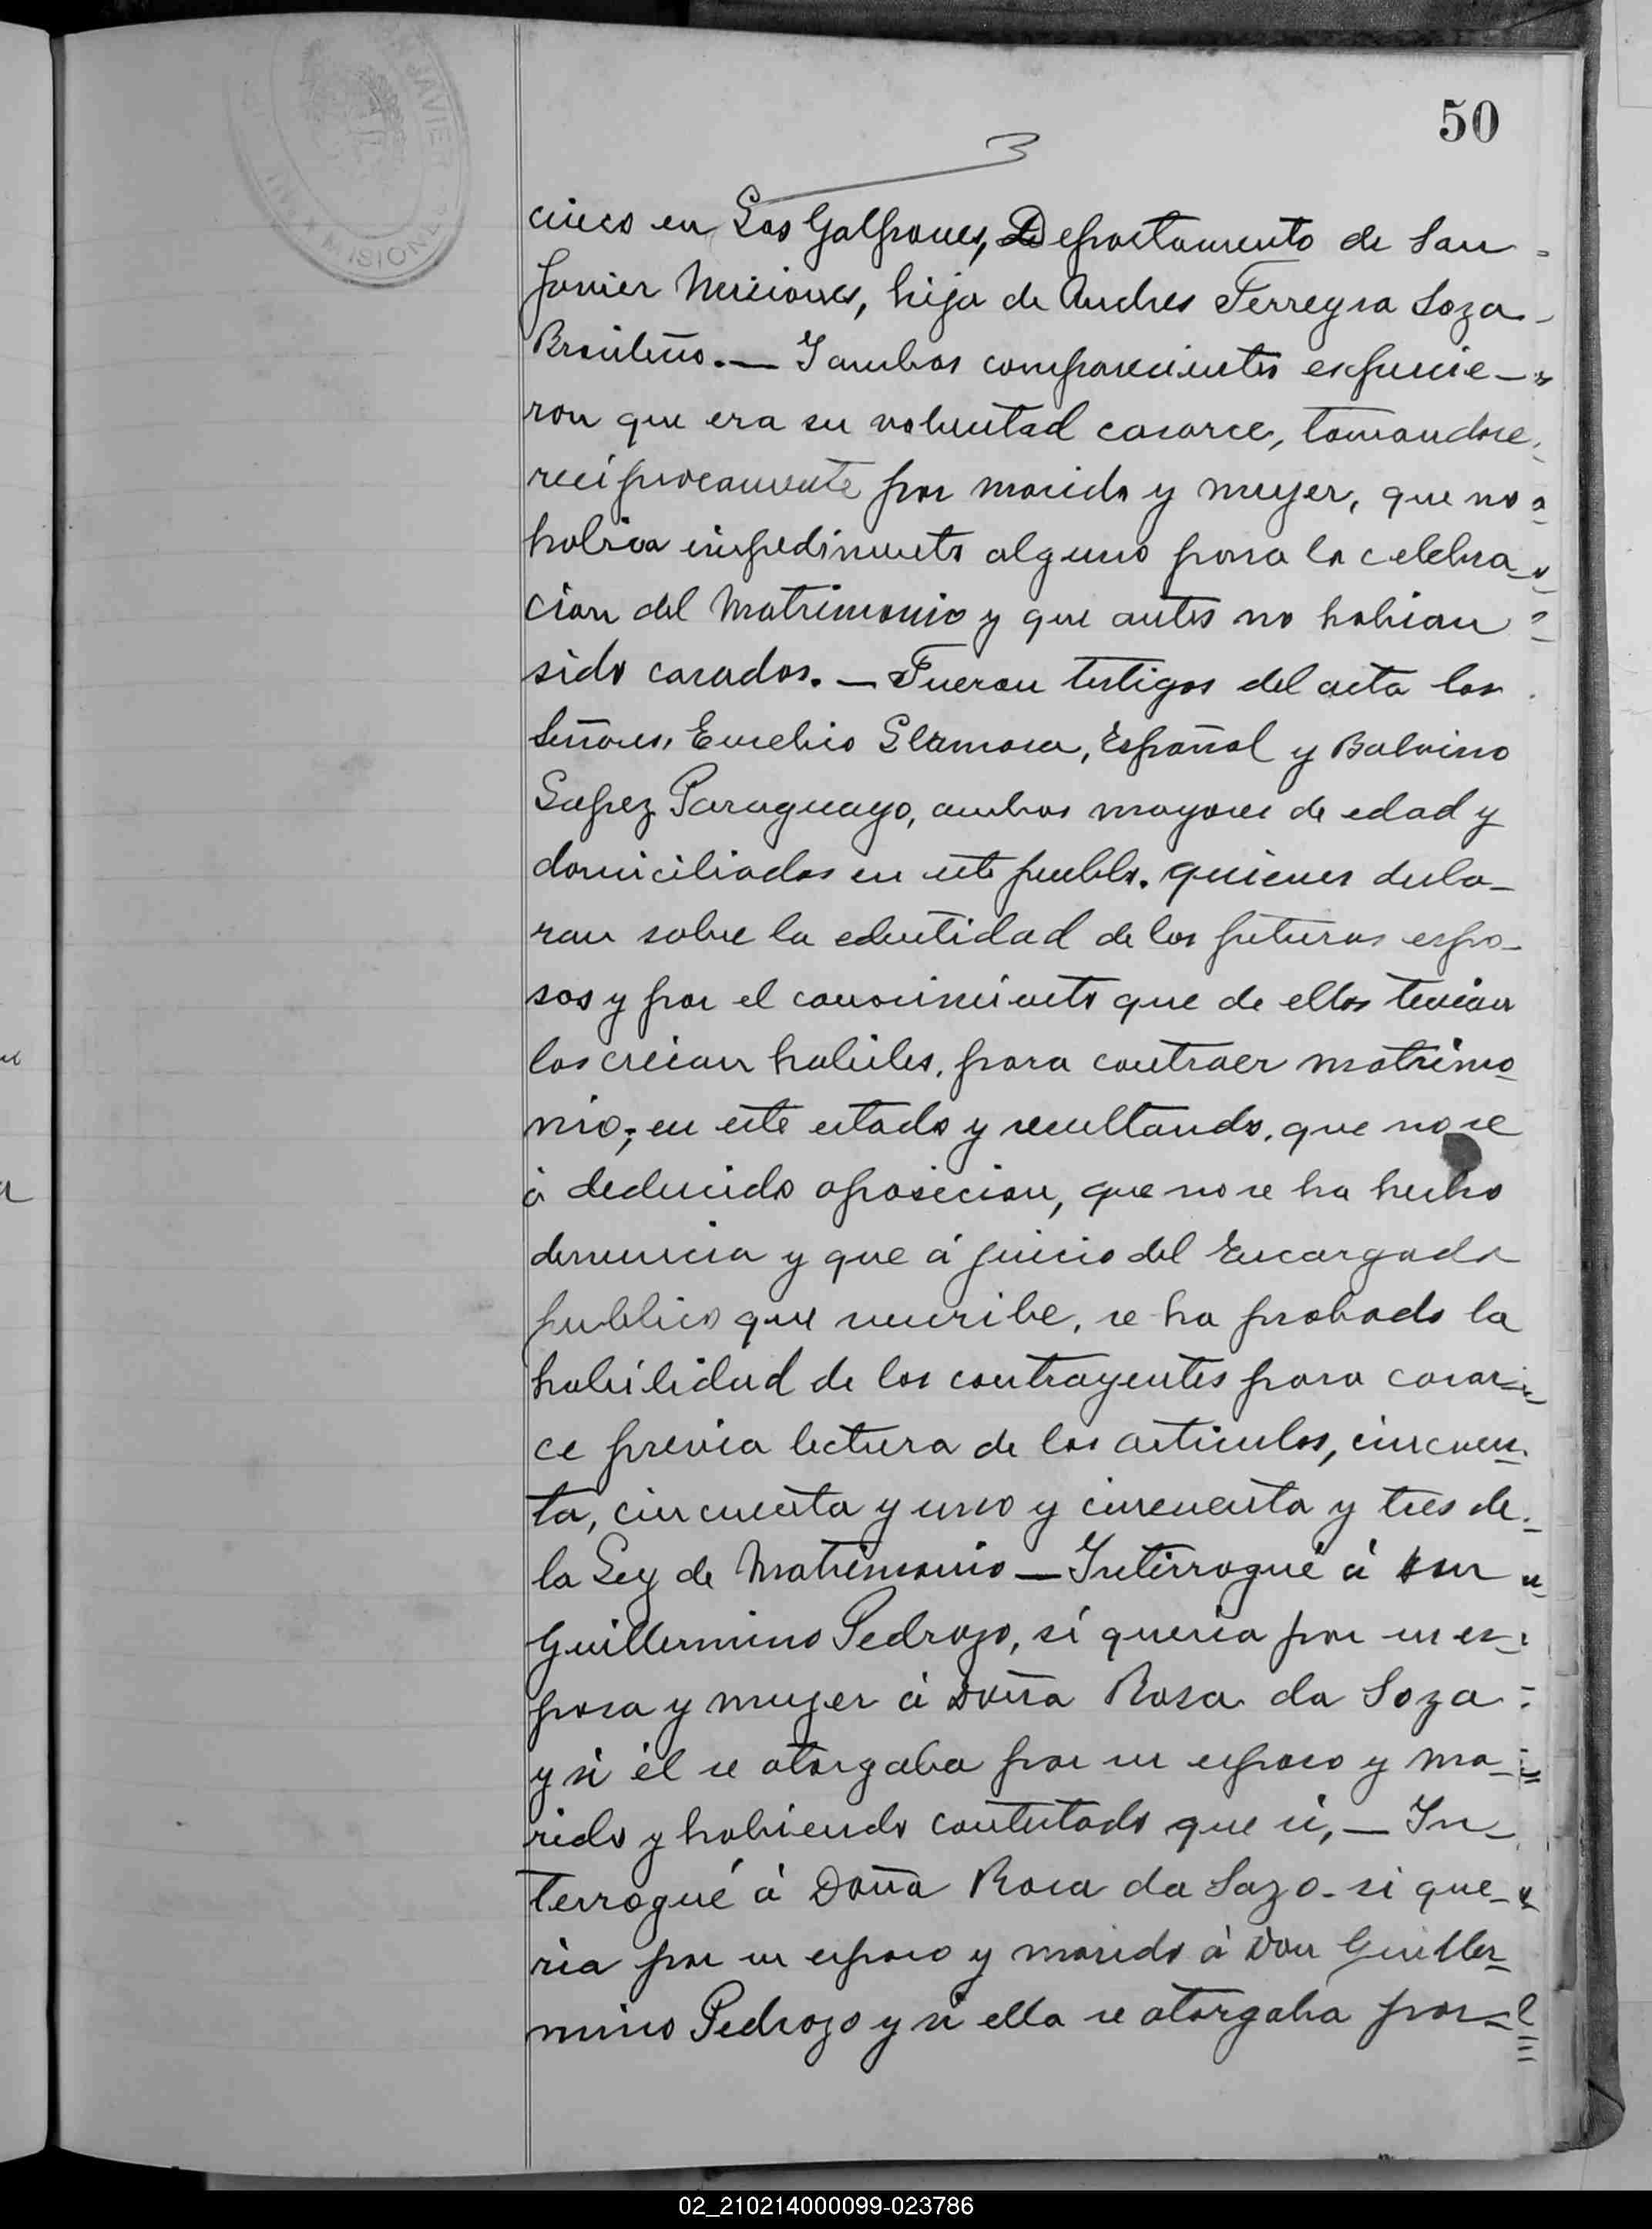 50
3
cinco en Los Galpones, Departamento de San
Javier Misiones, hija de Andres Ferreyra Soza
Brasileño. — Y ambos comparecientes expucie-
ron que era su voluntad casarce, tomandose
reciprocamente por marido y mujer, que no
habia impedimento alguno para la celebra-
cion del Matrimonio y que antes no habian
sido casados. — Fueron testigos del acta los
Señores, Eusebio Español y Balvino
Lopez Paraguayo, ambos mayores de edad y
domiciliados en este pueblo. quienes decla-
ran sobre la edentidad de los futuros espo-
sos y por el conocimiento que de ellos tenian
los creian habiles, para contraer matrimo-
nio; en este estado y resultando, que no se
á deducido oposicion, que no se ha hecho
denuncia y que á juicio del Encargado
publico que suscribe, se ha probado la
habilidad de los contrayentes para casar-
ce previa lectura de los articulos, cincuen-
ta, cincuenta y uno y cincuenta y tres de
la Ley de Matrimonio — Interrogué á
Guillermino Pedrozo, si queria por su es-
posa y mujer á Doña Rosa da Soza
y si él se otorgaba por su esposo y ma-
rido y habiendo contestado que si, — In-
terrogué á Doña Rosa da Soza si que-
ria por su esposo y marido á Don Guiller-
mino Pedrozo y si ella se otorgaba por
JAVIER
MISIONES
02_210214000099-023786